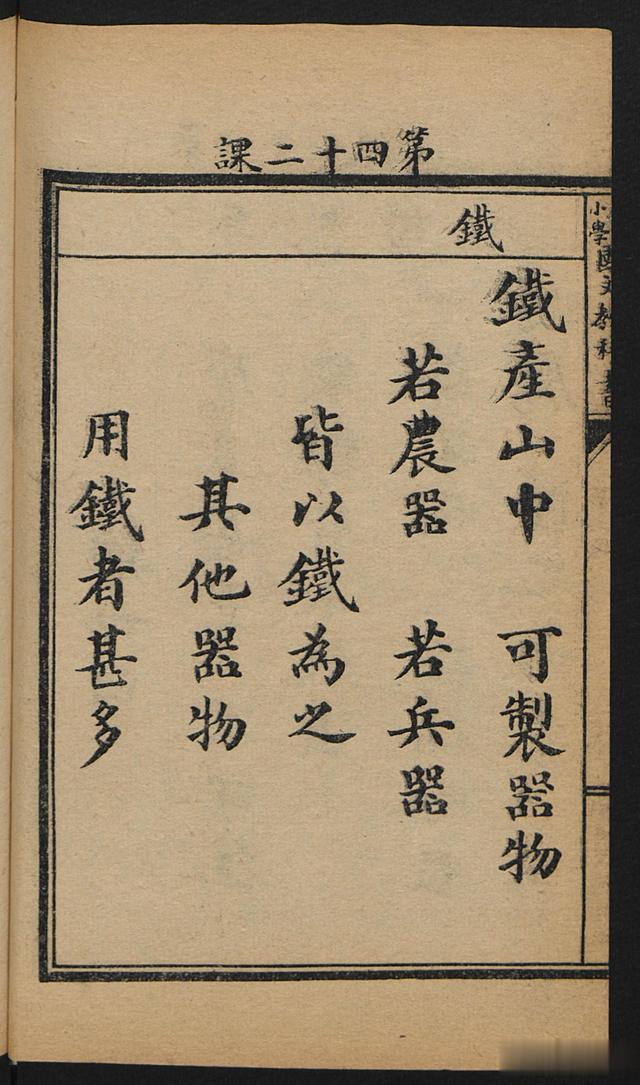 第四十二課
小學國文教科書
鐵
鐵產山中　可製器物
若農器　若兵器
皆以鐵為之
其他器物
用鐵者甚多